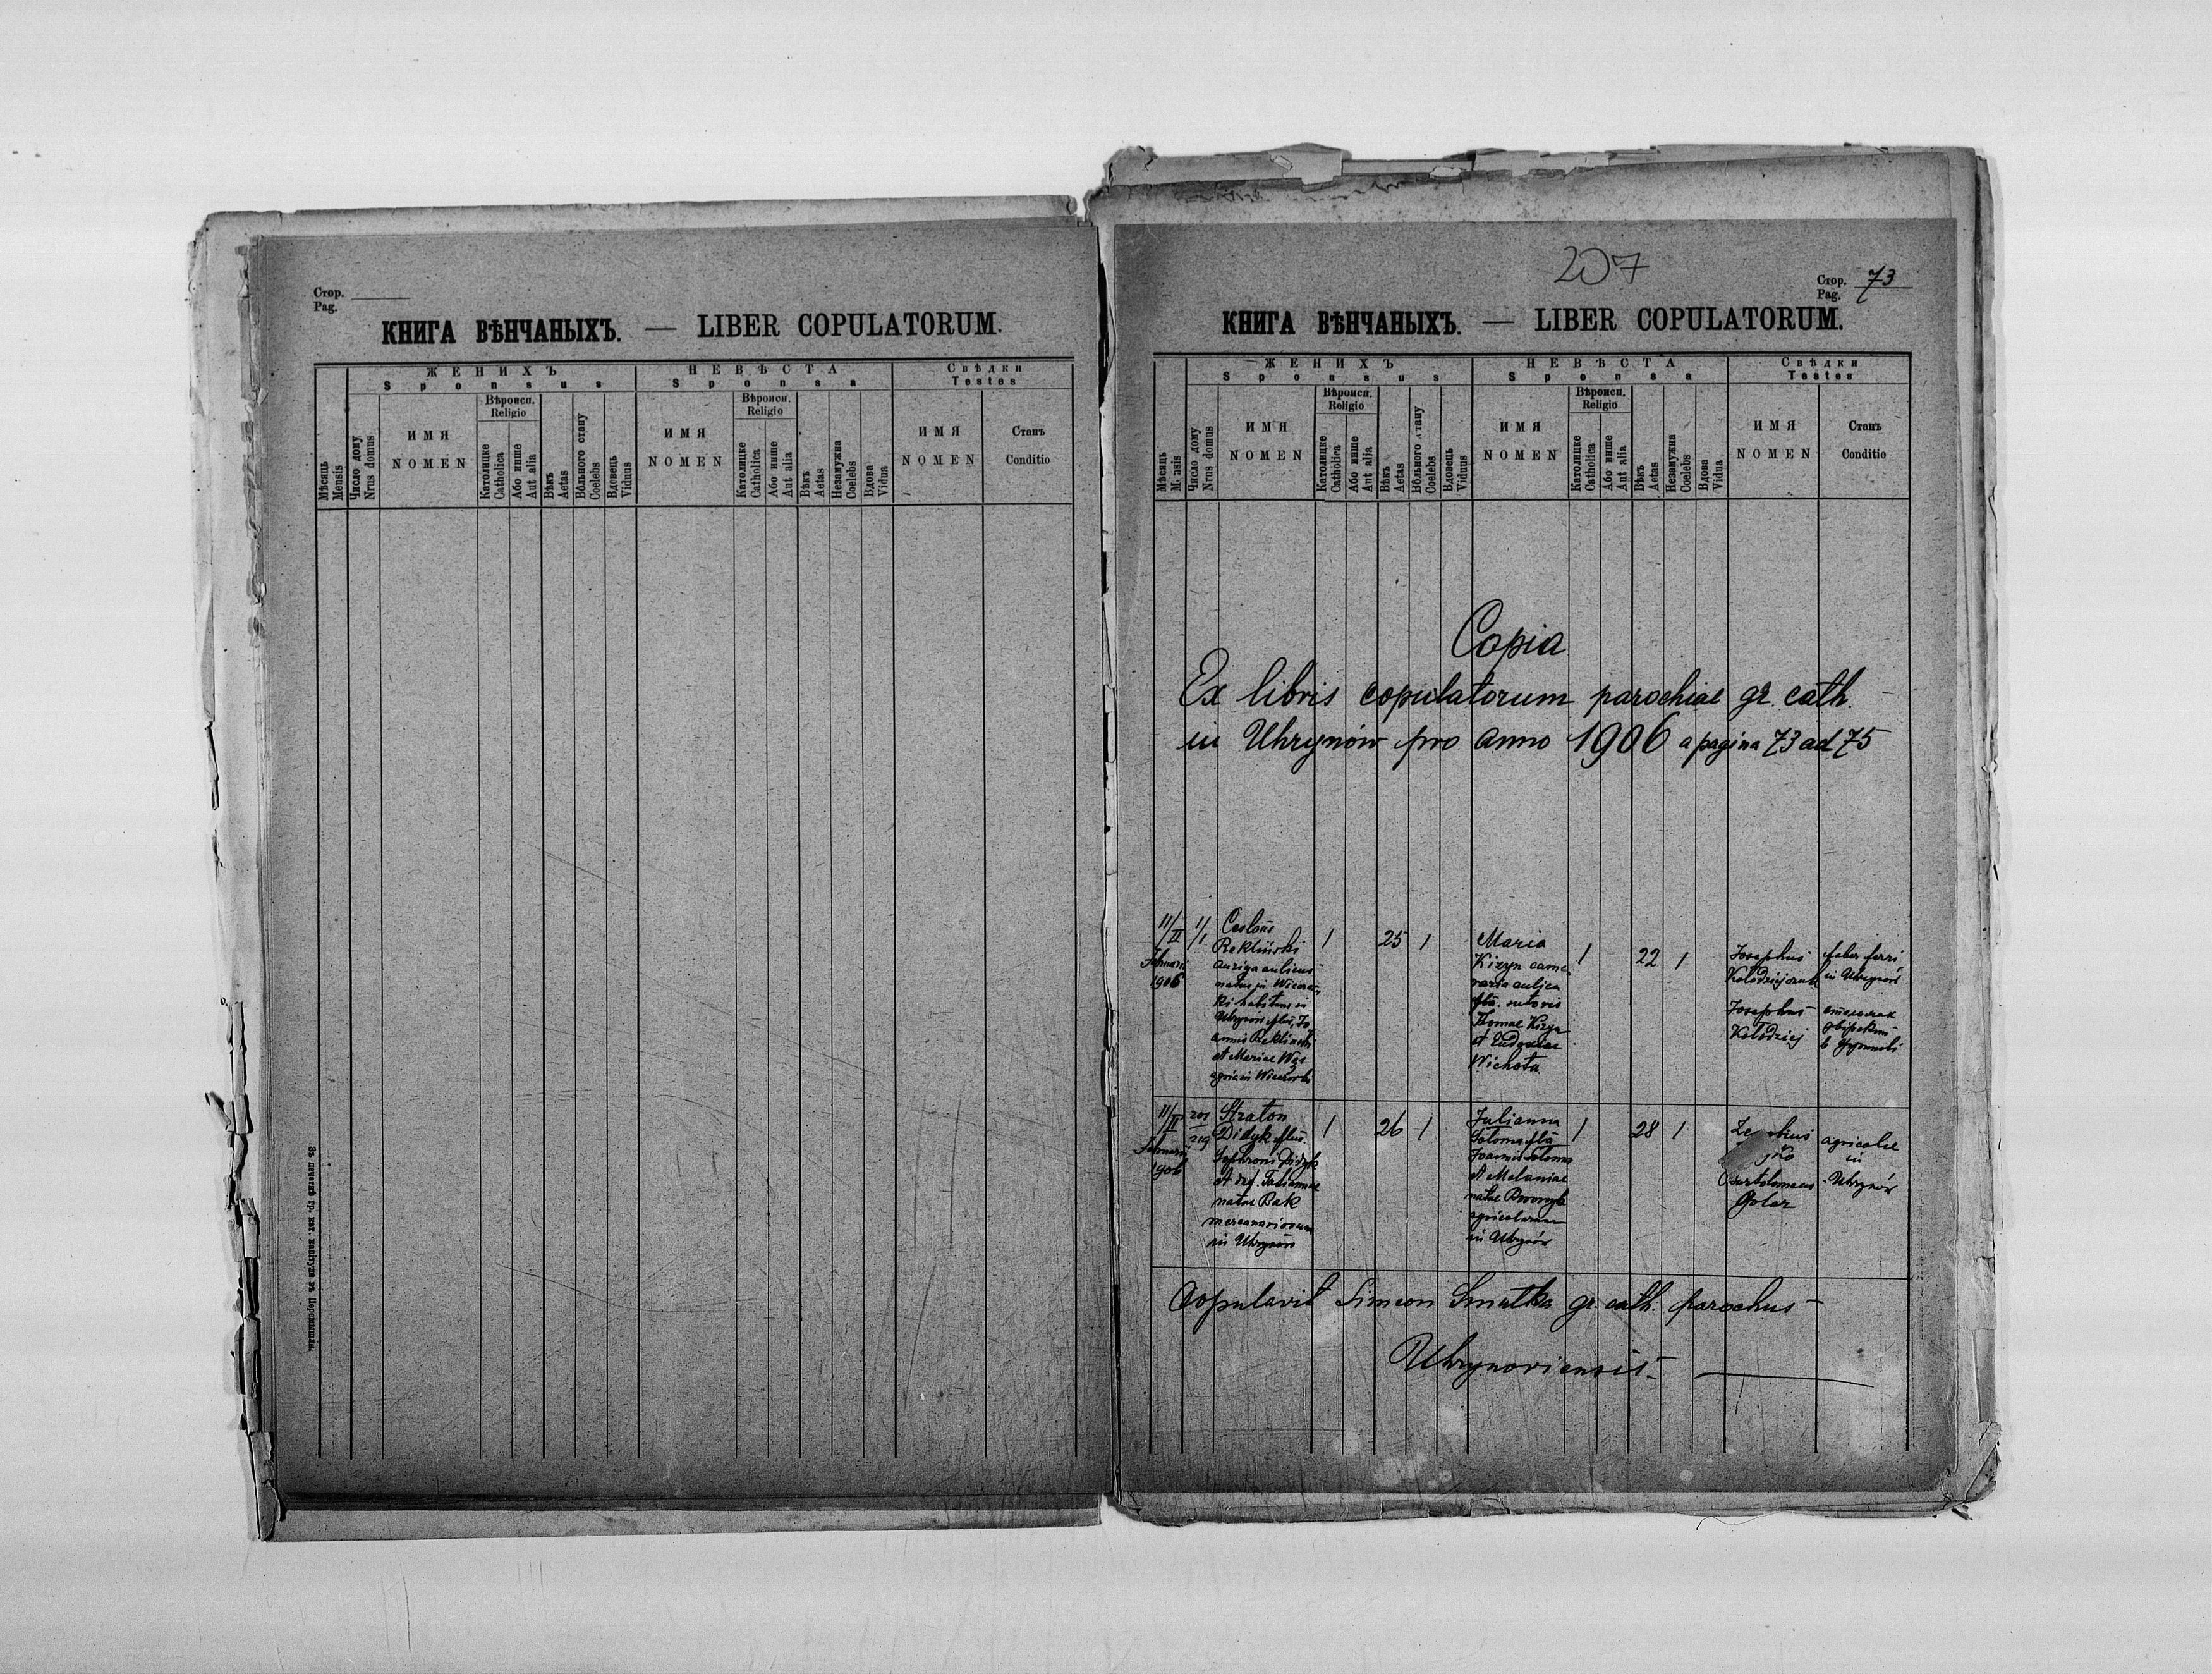 Стор.
Pag.
КНИГА ВѢНЧАНЫХЪ. — LIBER COPULATORUM.
Мѣсяць
Mensis
Число дому
Nrus domus
ЖЕНИХЪ
Sponsus
ИМЯ
NOMEN
Вѣроисп.
Religio
Католицке
Catholica
Або инше
Aut alia
Вѣкъ
Aetas
Вôльного стану
Coelebs
Вдовець
Viduus
НЕВѢСТА
Sponsa
ИМЯ
NOMEN
Вѣроисп.
Religio
Католицке
Catholica
Або инше
Aut alia
Вѣкъ
Aetas
Незамужна
Coelebs
Вдова
Vidua
Свѣдки
Testes
ИМЯ
NOMEN
Станъ
Conditio
Зъ печатнѣ гр. кат. капітулы въ Перемышли.
207
Стор. 73
Pag.
КНИГА ВѢНЧАНЫХЪ. — LIBER COPULATORUM.
Мѣсяць
M. nsis
Число дому
Nrus domus
ЖЕНИХЪ
Sponsus
ИМЯ
NOMEN
Вѣроисп.
Religio
Католицке
Catholica
Або инше
Aut alia
Вѣкъ
Aetas
Вôльного стану
Coelebs
Вдовець
Viduus
НЕВѢСТА
Sponsa
ИМЯ
NOMEN
Вѣроисп.
Religio
Католицке
Catholica
Або инше
Aut alia
Вѣкъ
Aetas
Незамужна
Coelebs
Вдова
Vidua
Свѣдки
Testes
ИМЯ
NOMEN
Станъ
Conditio
Copia
Ex libris copulatorum parochiae gr. cath.
in Uhrynów pro anno 1906 a pagina 73 ad 75
11/II
Februarii
1906
1/1
Ceslaus
Rekliński
auriga aulicus
natus in
habitans in
Uhrynów
Rekliński
et Mariae Wąs
agric. in
1
25
1
Maria
Kizyn
aulica
Thomae Kizyn
et Eudoxiae
Wichota
1
22
1
Josephus
Kołodziejczuk
faber ferri
in Uhrynów
Josephus
Kołodziej
11/II
Februarii
1906
201
219
Straton
Didyk
Sophroni Didyk
et
natae Bak
mercenariorum
in Uhrynów
1
26
1
Julianna
Soloma
Joannis Soloma
et Melaniae
natae
agricolarum
in Uhrynów
1
28
1
Bartolomaeus
Golar
agricolae
in
Uhrynów
Copulavit Simeon Smutka gr. cath. parochus
Uhrynoviensis